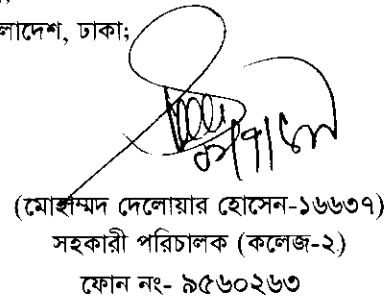 লাদেশ, ঢাকা;
(মোহাম্মদ দেলোয়ার হোসেন-১৬৬৩৭)
সহকারী পরিচালক (কলেজ-২)
ফোন নং- ৯৫৬০২৬৩